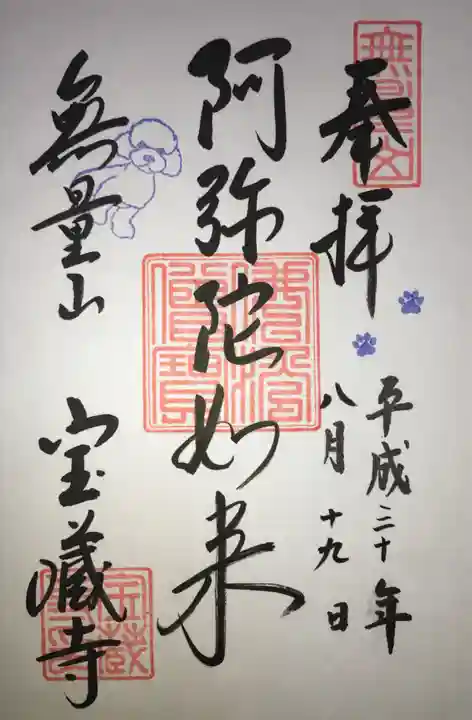 奉拝
平成三十年
八月十九日
阿弥陀如来
無量山
宝蔵寺
佛法僧寳